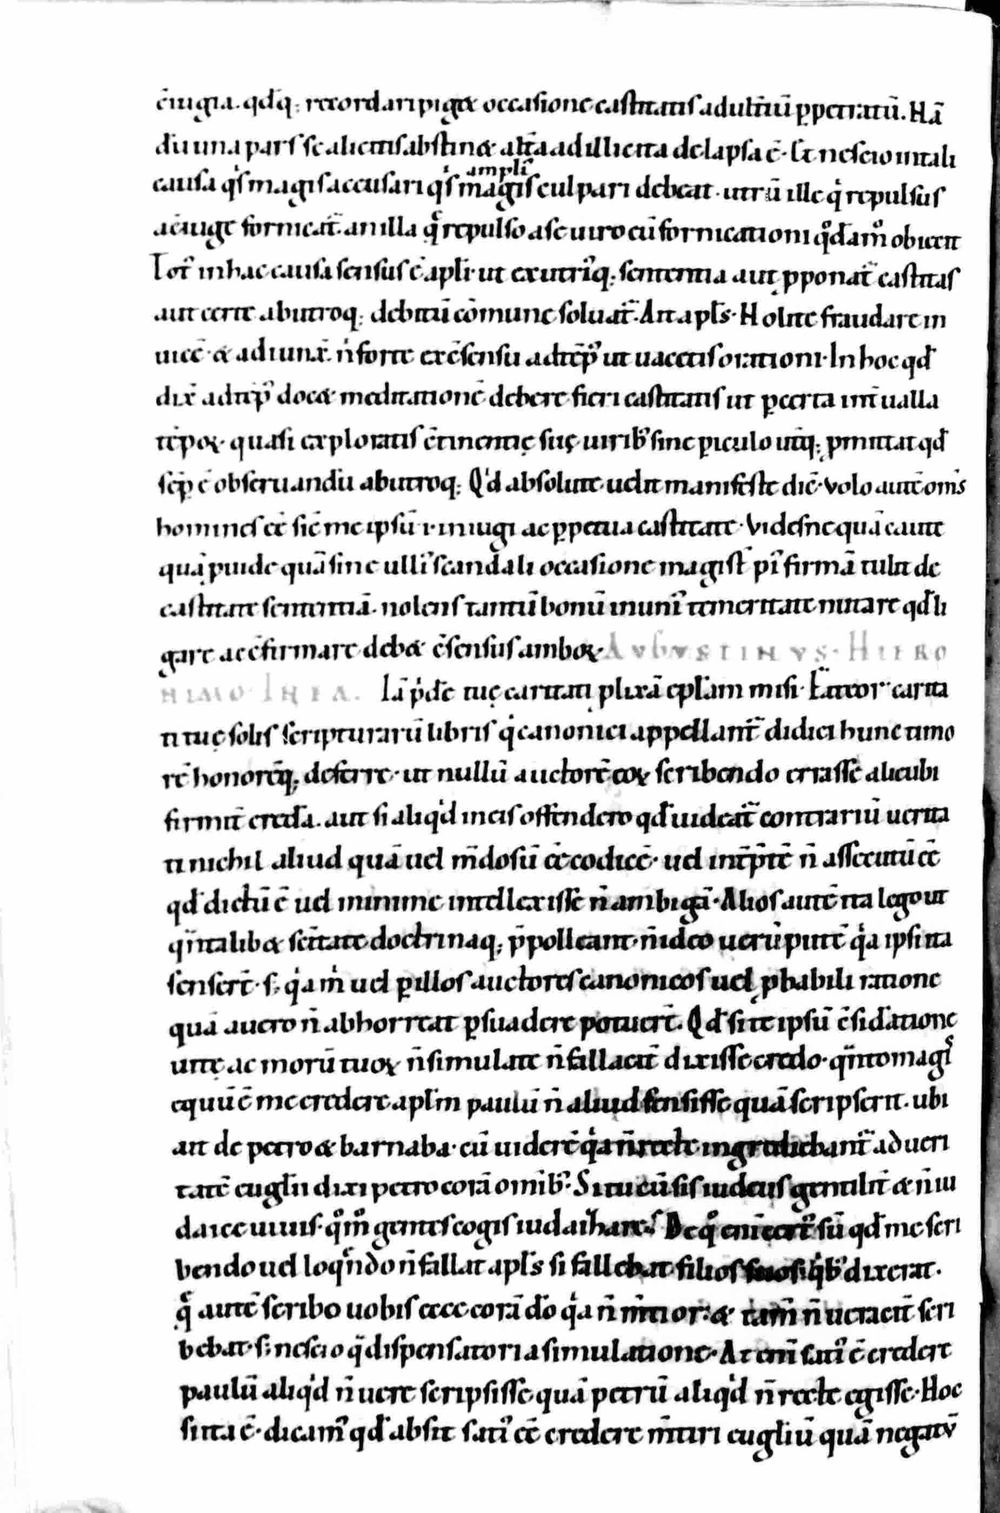 c̄iugia. qd̄q; recordari piget occasione castitatis adulteriū ꝑpetratū. Hā
dū una pars se a licitis abstinet altera ad illicita delapsa ē. Et nescio in tali
causa quis magis accusari quis magis ampli' culpari debeat. utrū ille qui repulsus
a c̄iuge fornicat̄. an illa que repulso a se uiro eū fornicationi quodāmo obiecit
Tot' in hac causa sensus ē apl̄i. ut ex utriq; sententia aut p̄ponat̄ castitas
aut certe ab utroq; debitū cōmune soluat̄. Ait apl̄s. Nolite fraudare in
uicē. et adiunx̄. n̄ forte ex c̄sensu ad tēp' ut uacetis orationi. In hoc qd̄
dix̄ ad tēp' docet meditationē debere fieri castitatis ut ꝑ certa int̄ualla
tēpoꝝ. quasi exploratis c̄tinentię suę uirib' sine ꝑiculo utriq; ꝓmittat qd̄
sēp ē obseruandū ab utroq; Qd absolute uelit manifeste dic̄. Uolo autē om̄s
homines ēe sic̄ me ipsū. i. in iugi ac ꝑpetua castitate. Videsne quā caute
quā ꝓuide quā sine ulli' scandali occasione magist̄ pi' firmā tulit de
castitate sententiā. nolens tantū bonū in uni' temeritate nutare qd̄ li
gare ac c̄firmare debet c̄sensus amboꝝ. AVGVSTINVS. HIERO
NIMO. INFRA. Iā p̄de tuę caritati plixā eplam misi. Fateor caritа
ti tuę solis scripturarū libris qui canonici appellant̄ didici hunc timo
rē honorēq; deferre. ut nullū auctorē eoꝝ scribendo errasse alicubi
firmit̄ credā. aut si aliqd in eis offendero qd̄ uideat̄ contrariū uerita
ti nichil aliud quā uel m̄dosū ēe codicē. uel int̄p̄tē n̄ assecutū ēe
qd̄ dictū ē uel minime intellexisse n̄ ambigā. Alios autē ita lego ut
qn̄talibet sc̄itate doctrinaq; p̄polleant. n̄ ideo uerū putē quia ipsi ita
senser̄t. s; quia m̄ uel ꝑ illos auctores canonicos uel ꝓbabili ratione
quā a uero n̄ abhorreat ꝑsuadere potuer̄t. Qd̄ si te ipsū c̄sid̄atione
uitę ac morū tuoꝝ n̄ simulate n̄ fallacit̄ dixisse credo. qn̄to magis
equū ē me credere apl̄m paulū n̄ aliud sensisse quā scripserit. ubi
ait de petro et barnaba. cū uiderē quia n̄ recte ingrediebant̄ ad ueri
tatē euglīi dixi petro corā omnib'. Si tu cū sis iudeus gentilit̄ et n̄ iu
daice uiuis. quom̄ gentes cogis iudaizare? De quo enī cert' sū qd̄ me scri
bendo uel loquendo n̄ fallat apl̄s si fallebat filios suos. quib' dixerat.
que autē scribo uobis ecce corā do quia n̄ m̄tior. et tam̄ n̄ ueracit̄ scri
bebat. s; nescio q̄ dispensatoria simulatione. At enī sati' ē credere
paulū aliqd n̄ uere scripsisse quā petrū aliqd n̄ recte egisse. Hoc
si ita ē. dicam' qd̄ absit sati' ēe credere m̄tiri eugliū quā negatū